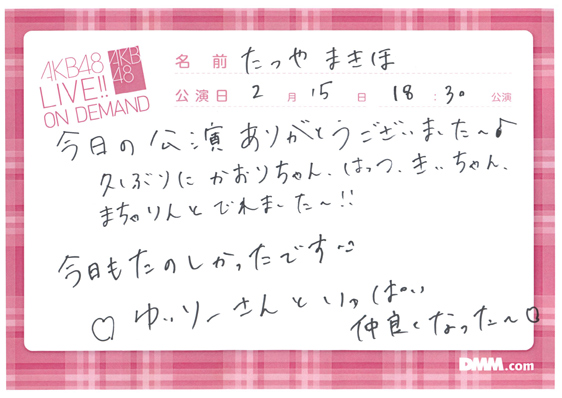 AKB48
LIVE!!
ON DEMAND
AKB
48
名前 たつや まきほ
公演日 2月15日 18:30 公演
今日の公演ありがとうございました〜♪
久しぶりに かおりちゃん、はっつ、きぃちゃん、
まちゃりんとでれました〜!!
今日もたのしかったです
♡ ゆいりーさんといっぱい
仲良くなった〜♡
DMM.com